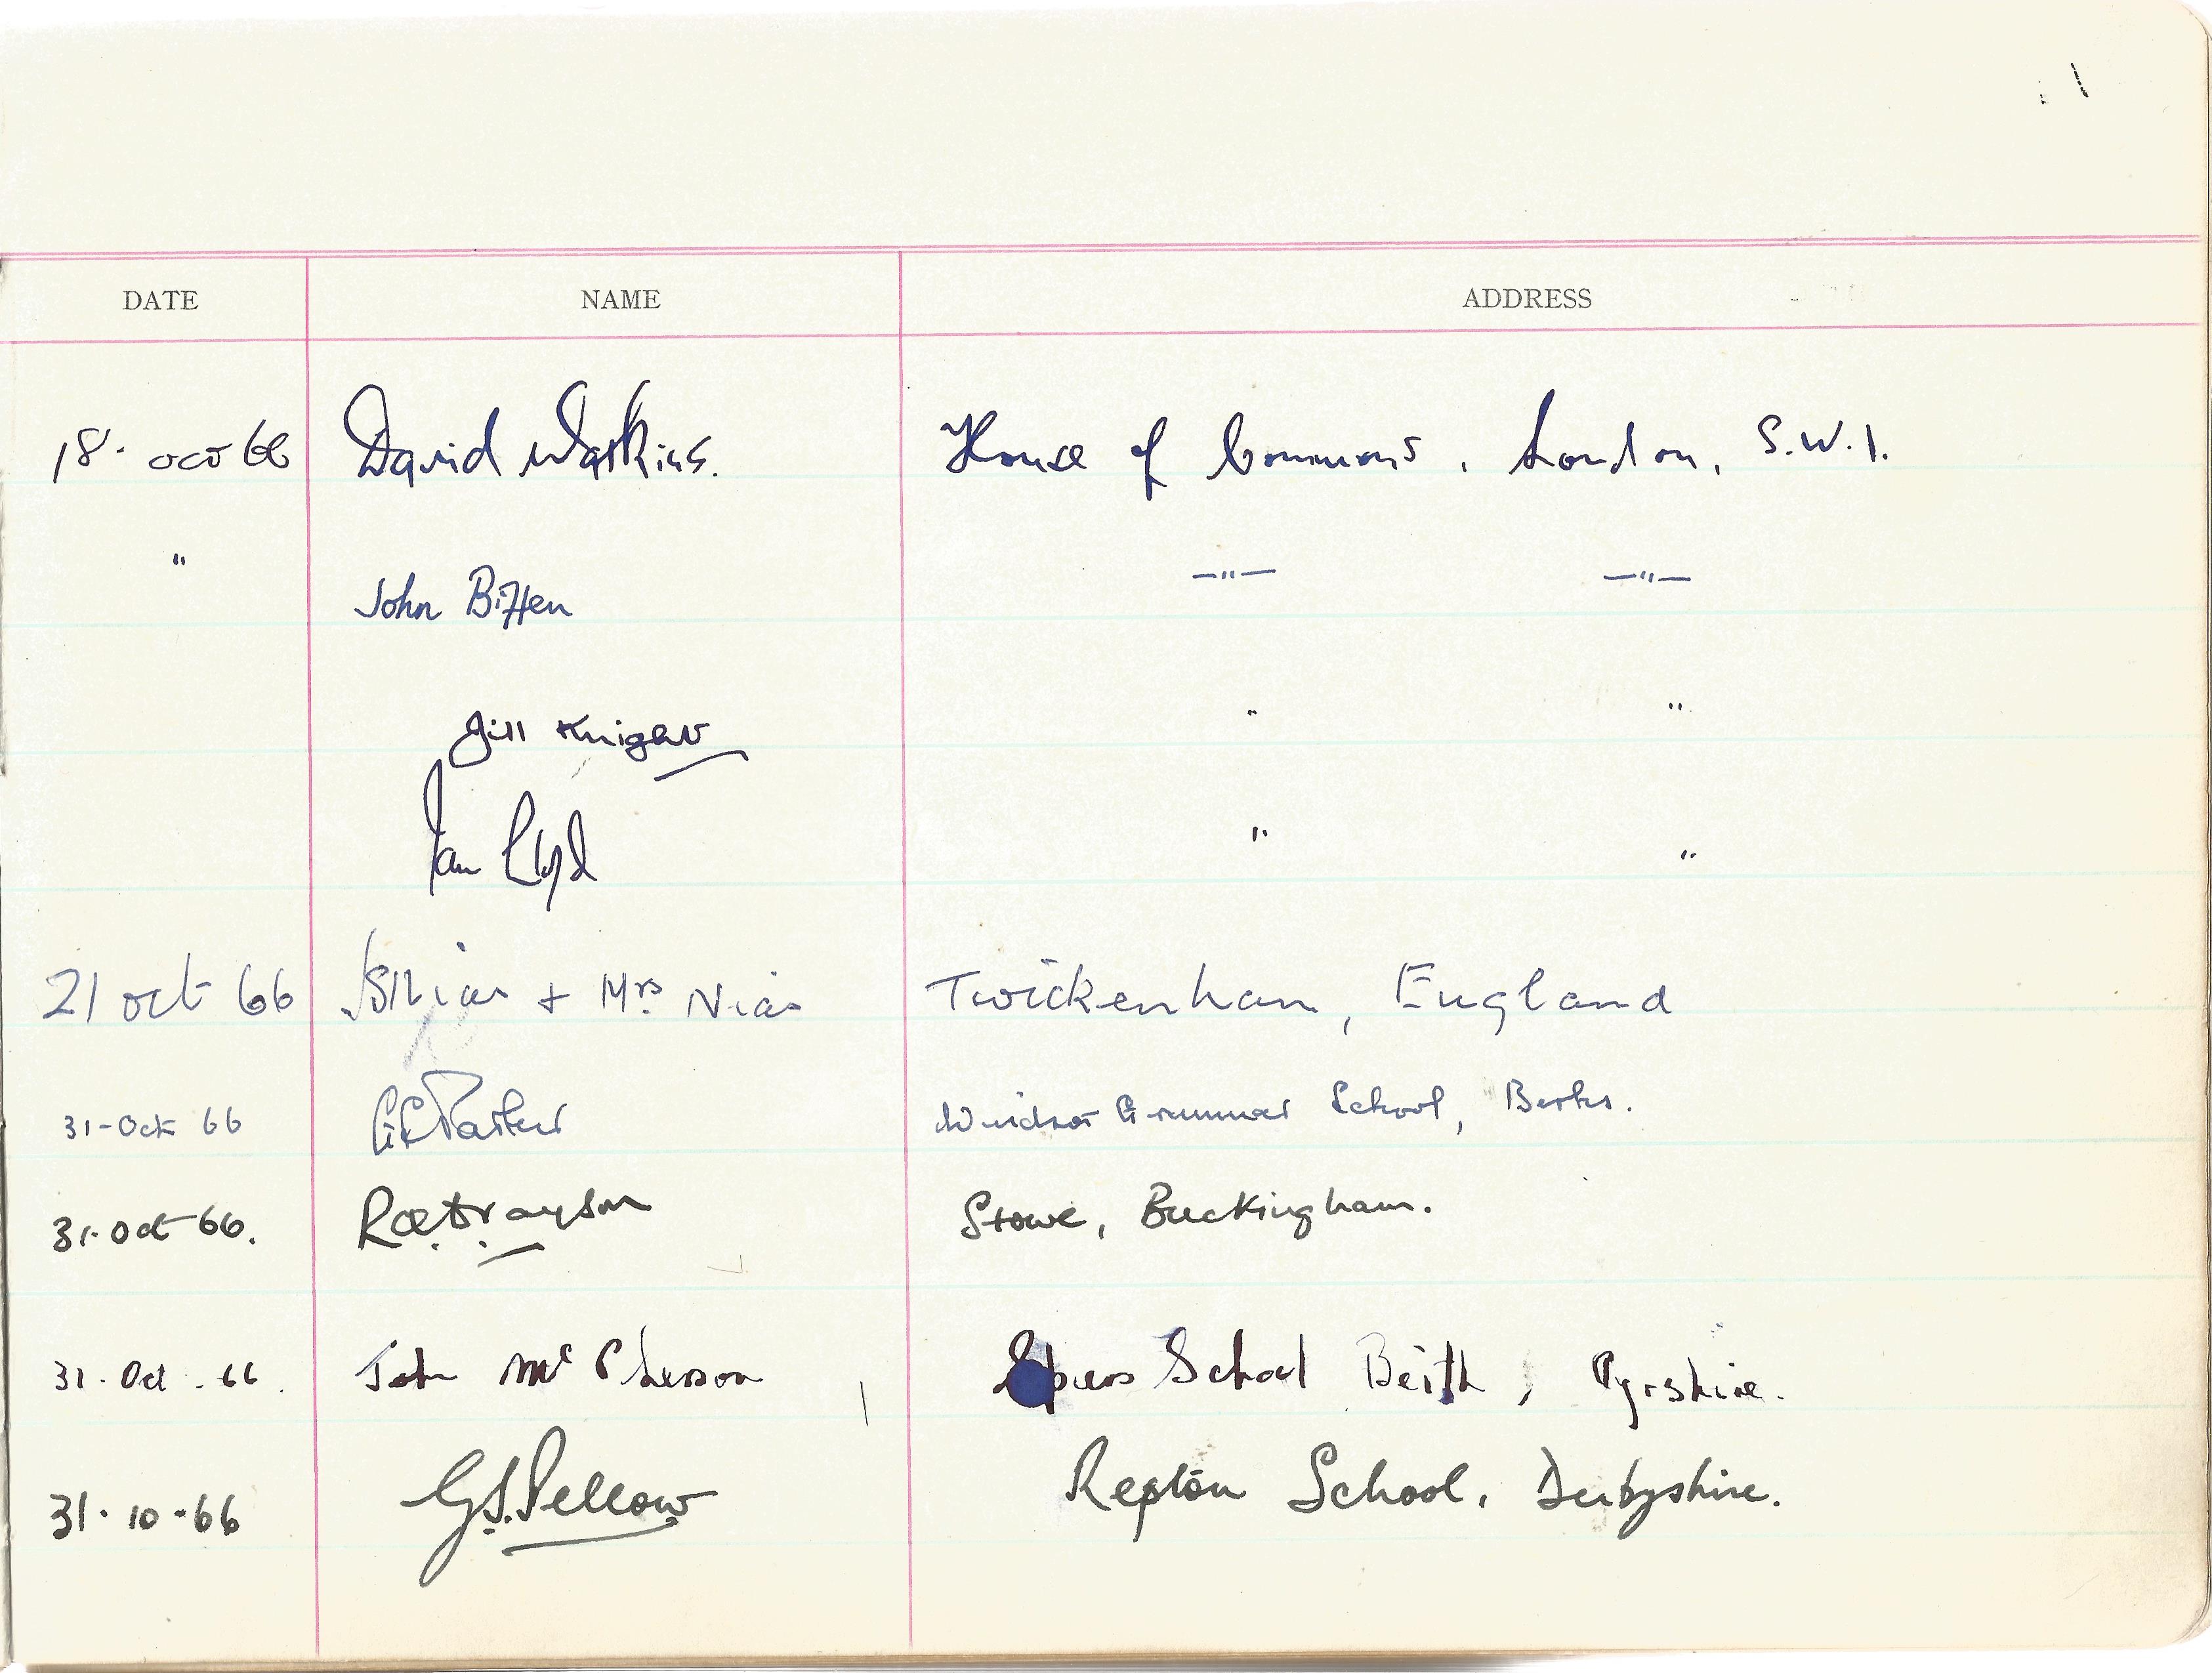 DATE NAME ADDRESS
18. Oct 66 David Watkins. House of Commons, London, S.W.1.
" John Biffen —"— —"—
Jill Knight " "
Ian Lloyd " "
21 Oct 66 + Mrs Nias Twickenham, England
31-Oct 66 Windsor Grammar School, Berks.
31-Oct 66. Stowe, Buckingham.
31-Oct-66. John McPherson Spiers School Beith, Ayrshire.
31-10-66 G.S. Pellow Repton School, Derbyshire.